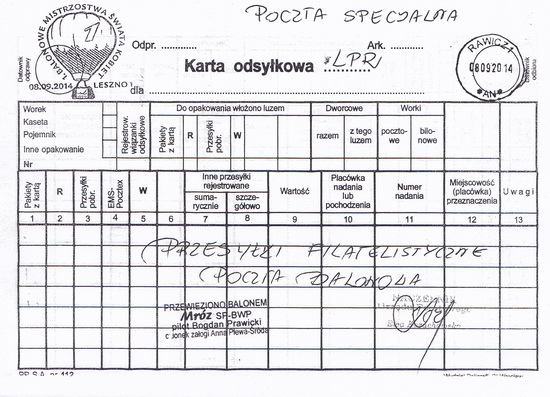 POCZTA SPECJALNA
1. BALONOWE MISTRZOSTWA ŚWIATA KOBIET
08.09.2014 LESZNO 1
Datownik odprawy
Odpr. ............
Ark. ............
Karta odsyłkowa *LPR/
dla
RAWICZ 1
080920 14
*AN*
Datownik odbioru
Worek
Kaseta
Pojemnik
Inne opakowanie
Nr
Rejestrow. wiązanki odsyłkowe
Do opakowania włożono luzem
Pakiety z kartą
R
Przesyłki pobr.
W
Dworcowe
razem
z tego luzem
Worki
poczto-we
bilo-nowe
Pakiety z kartą
R
Przesyłki pobr.
EMS-Pocztex
W
Inne przesyłki rejestrowane
suma-rycznie
szcze-gółowo
Wartość
Placówka nadania lub pochodzenia
Numer nadania
Miejscowość (placówka) przeznaczenia
Uwagi
1 2 3 4 5 6 7 8 9 10 11 12 13
PRZESYŁKI FILATELISTYCZNE
POCZTA BALONOWA
PRZEWIEZIONO BALONEM
Mróz SP-BWP
pilot Bogdan Prawicki
członek załogi Anna Plewa-Środa
NACZELNIK
PP S.A. nr 112